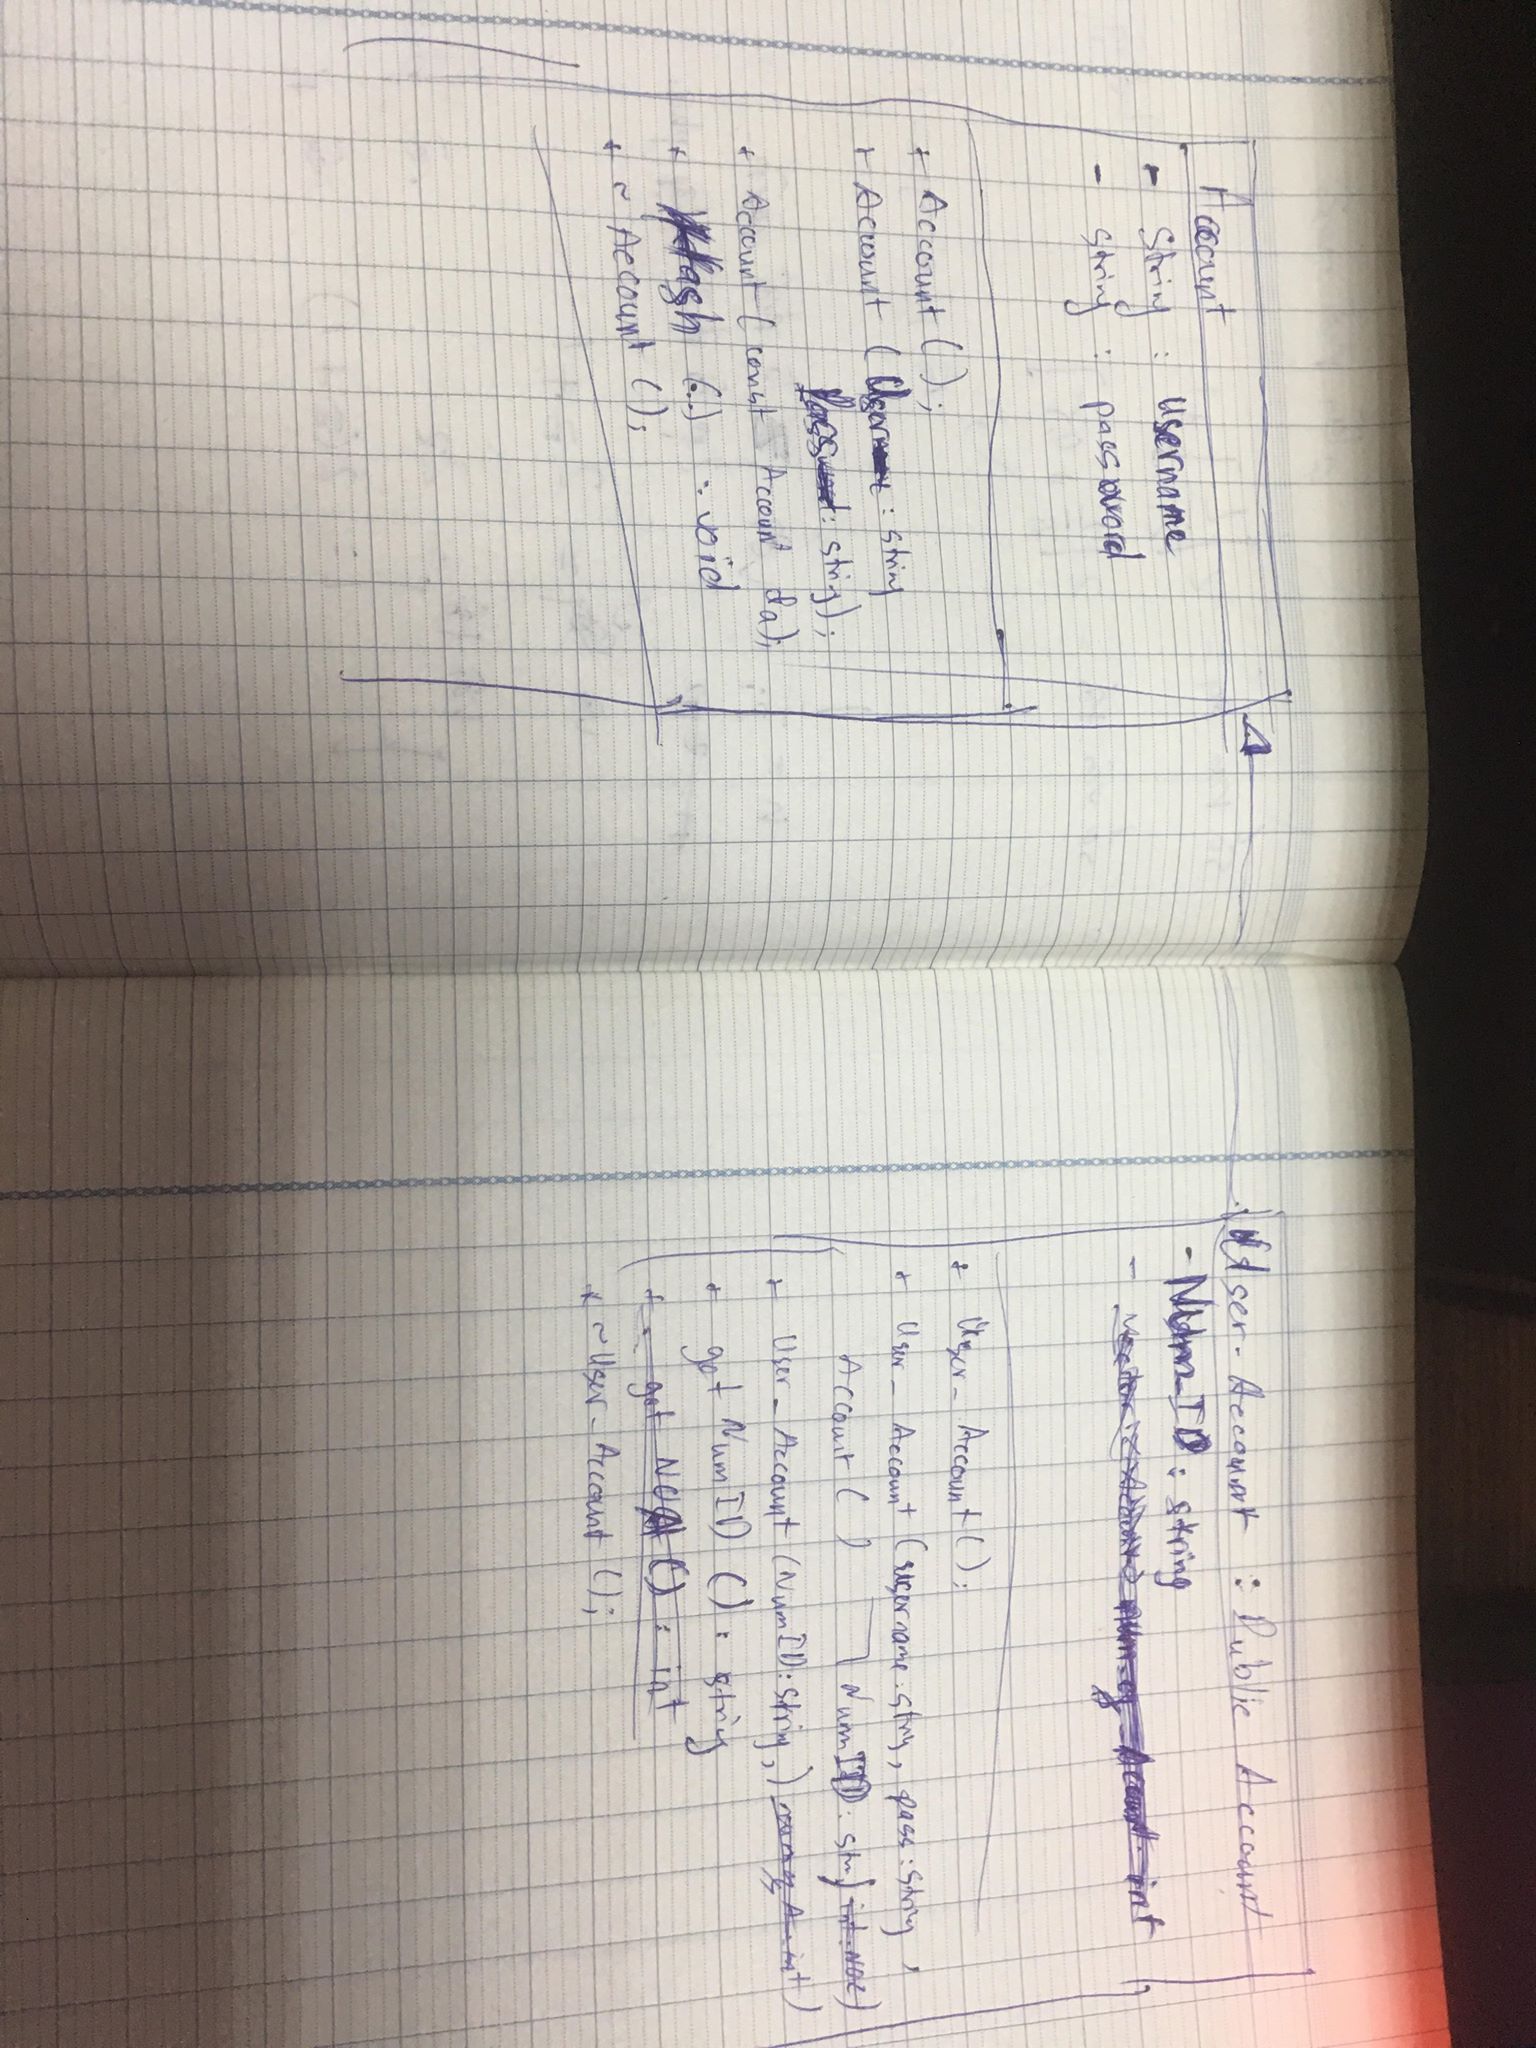 Account
- String : Username
- String : password
+ Account ();
+ Account (Username : string
Password : string);
+ Account (const Account &a);
+ Hash (...) : void
+ ~ Account ();
User-Account : Public Account
- Num_ID : string
- num_of_Account : int
+ User_Account ();
+ User_Account (username : string, pass : string,
Account ( ) NumID : string int NOA)
+ User_Account (NumID : string, ) num of A : int)
+ get NumID () : string
+ get NOA () : int
+ ~User-Account ();